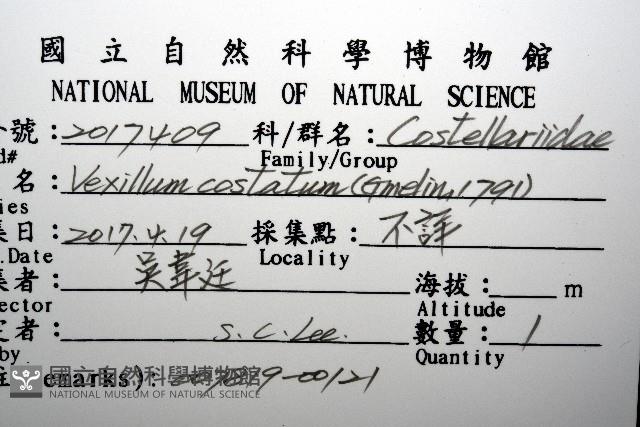 國立自然科學博物館
NATIONAL MUSEUM OF NATURAL SCIENCE
號：2017409 科/群名：Costellariidae
d# Family/Group
名：Vexillum costatum (Gmelin, 1791)
ies
集日：2017.4.19 採集點：不詳
.Date Locality
集者：吳韋廷 海拔：m
ector Altitude
定者：S.C.Lee. 數量：1
by Quantity
emarks)： -00121
國立自然科學博物館
NATIONAL MUSEUM OF NATURAL SCIENCE